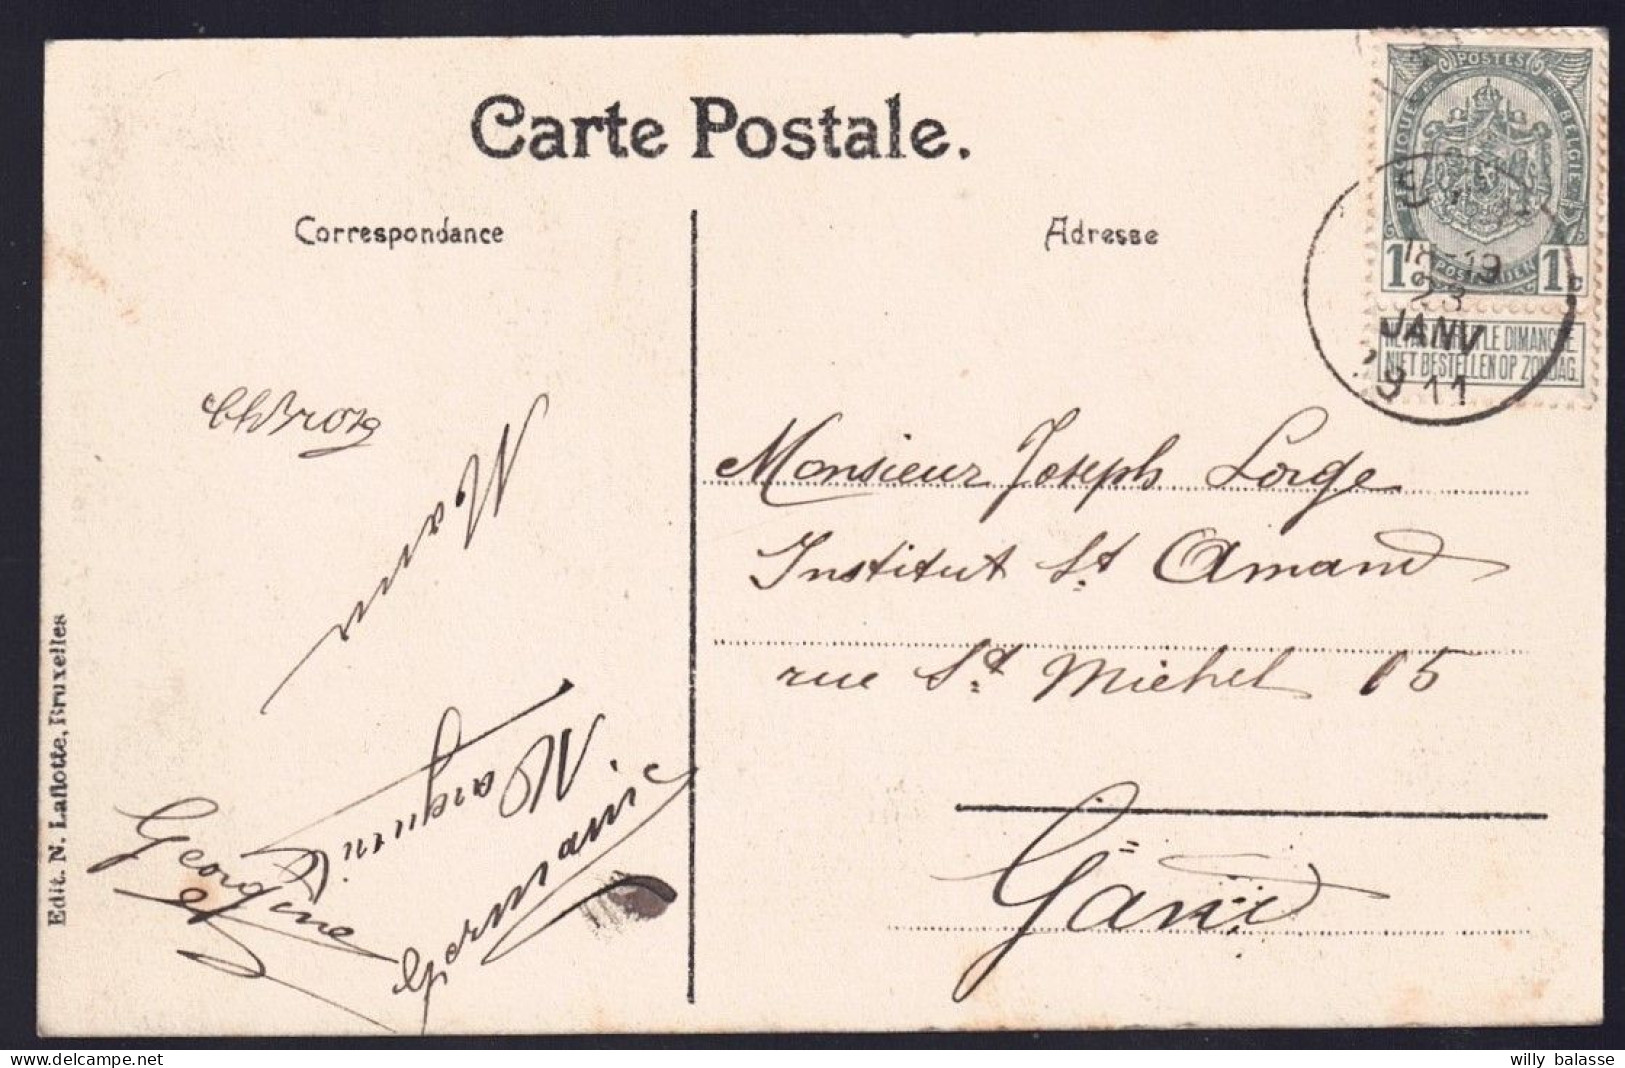 Carte Postale.
Correspondance
Adresse
POSTES
BELGIQUE
BELGIE
1 1c
NE PAS LIVRER LE DIMANCHE
NIET BESTELLEN OP ZONDAG
18-19
23
JANV
1911
Monsieur Joseph Lorge
Institut St Amand
rue St Michel 15
Gand
Georgine
et
Germaine
Edit. N. Laflotte, Bruxelles
willy balasse